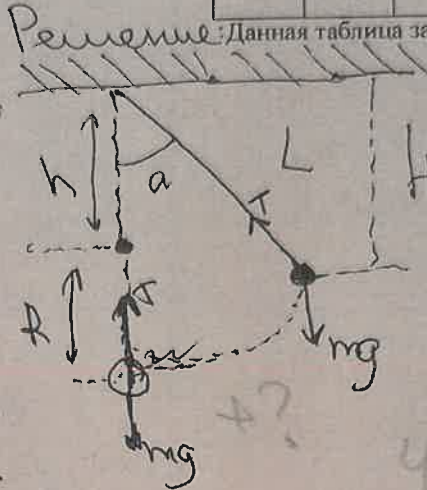 Решение: Данная таблица за
h
a
L
H
T
R
T
mg
mg
+?